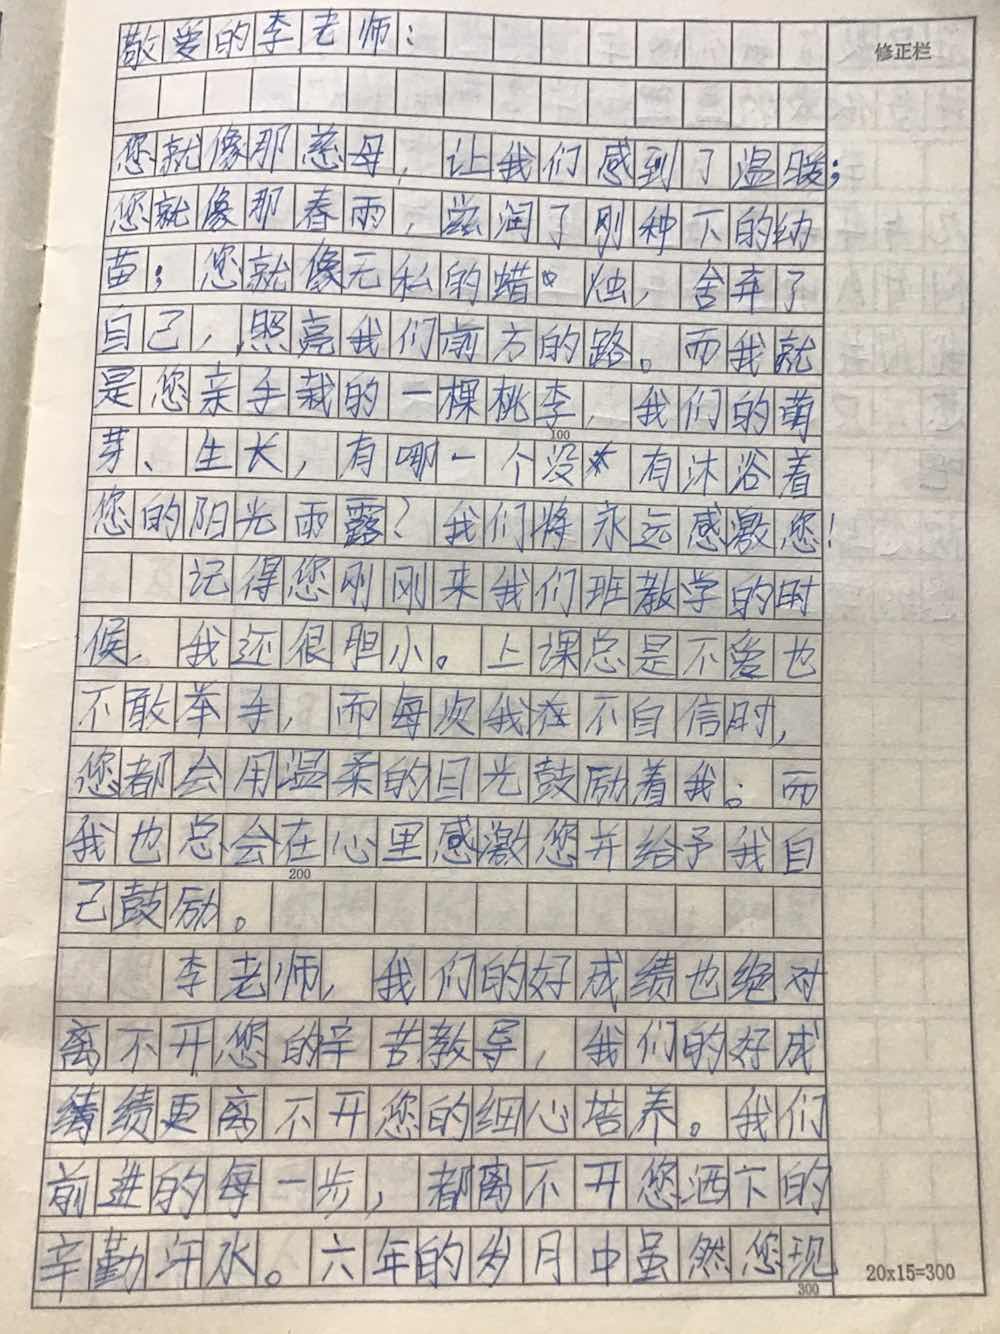 敬爱的李老师：
修正栏
您就像那慈母，让我们感到了温暖；
您就像那春雨，滋润了刚种下的幼
苗；您就像无私的蜡烛，舍弃了
自己，照亮我们前方的路。而我就
是您亲手栽的一棵桃李，我们的萌
100
芽、生长，有哪一个没有沐浴着
您的阳光雨露？我们将永远感激您！
记得您刚刚来我们班教学的时
候，我还很胆小。上课总是不爱也
不敢举手，而每次我在不自信时，
您都会用温柔的目光鼓励着我。而
我也总会在心里感激您并给予我自
200
己鼓励。
李老师，我们的好成绩也绝对
离不开您的辛苦教导，我们的好成
绩更离不开您的细心培养。我们
前进的每一步，都离不开您洒下的
辛勤汗水。六年的岁月中虽然您现
300
20x15=300